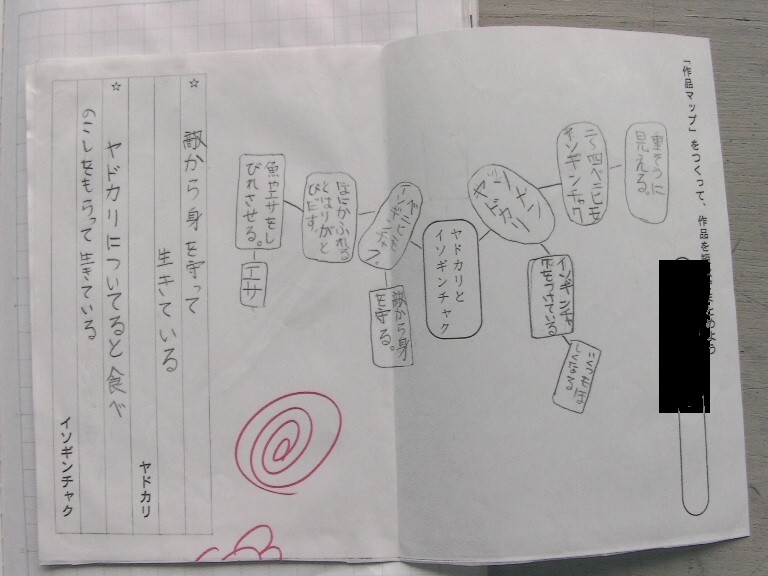 「作品マップ」をつくって、作品を
重そうに
見える。
二〜四ベニヒモ
イソギンチャク
ソメン
ヤドカリ
イソギンチャ
クをつけている
ヤドカリと
イソギンチャク
ベニヒモ
イソギンチャク
敵から身
を守る。
なにかふれる
とはりがと
びだす。
魚やエサをし
びれさせる。
エサ
☆
敵から身を守って
生きている
ヤドカリ
☆
ヤドカリについてると食べ
のこしをもらって生きている
イソギンチャク